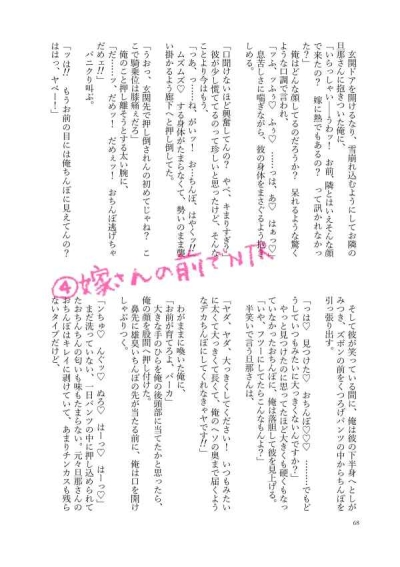 玄関ドアを開けるなり、雪崩れ込むようにしてお隣の
旦那さんに抱きついた俺に、
「いらっしゃい――うわッ！　お前、隣とはいえそんな顔
で来たの？　嫁に熱でもあるの？　って訊かれなかっ
俺はどんな顔してるのだろうか？　呆れるような驚く
ような口調で言われ、
「ッふ、ッふぅ♡　ふぅ♡　……っは、あ♡　はぁっ♡」
息苦しさに喘ぎながら、彼の身体をまさぐるよう抱き
しめる。
「口開けないほど興奮してんの？　やべ、キまりすぎ」
彼が少し慌ててるのって珍しいと思ったけど、そんな
ことより今はもう、
「っあ、っ……ね、がいッ！　お…ちんぽ、はやくッ！！」
ムズムズ♡　する身体がたまらなくて、勢いのまま襲
い掛かるよう廊下へと押し倒してた。
「うおっ、玄関先で押し倒されんの初めてじゃね？　こ
こで騎乗位は膝痛ぇだろ」
俺のこと押し離そうとする太い腕に、
「だ……ッ、だめッ！　だめぇッ！　おちんぽ逃げちゃ
だめェ！！」
パニクり叫ぶ。
「ッは！！　もうお前の目には俺ちんぽに見えてんの？
はは、ヤベー！」
④嫁さんの前でNTR
そして彼が笑っている間に、俺は彼の下半身へとしが
みつき、ズボンの前をくつろげパンツの中からちんぽを
引っ張り出す。
「つは♡　見つけた♡　おちんぽ♡♡　………でもど
うしていつもみたいに大っきくないんですか？」
やっと見つけたのに思ってたほど大きくも硬くもなっ
ていなかったおちんぽに、俺は落胆して彼を見上げる。
「いや、フツーにしてたらこんなもんよ？」
半笑いで言う旦那さんは、
「ヤダ、ヤダ、大っきくしてください！　いつもみたい
に太くて大っきくて長くて、俺のヘソの奥まで届くよう
なデカちんぽにしてくれなきゃヤです！！」
わがままに喚いた俺に、
「お前が育てろよ、バーカ」
大きな手のひらを俺の後頭部に当てたかと思ったら、
俺の顔を股間へ押し付けた。
鼻先に雄臭いちんぽの先が当たる前に、俺は口を開け
しゃぶりつく。
「ンちゅ♡　んくッ♡　ぬろ♡　はーっ♡　はーっ♡」
まだ洗っていない、一日パンツの中に押し込められて
たおちんちんの匂いも味もたまらない。元々旦那さんの
おちんぽはキレイに剥けていて、あまりチンカスも残ら
ないタイプだけど、
68